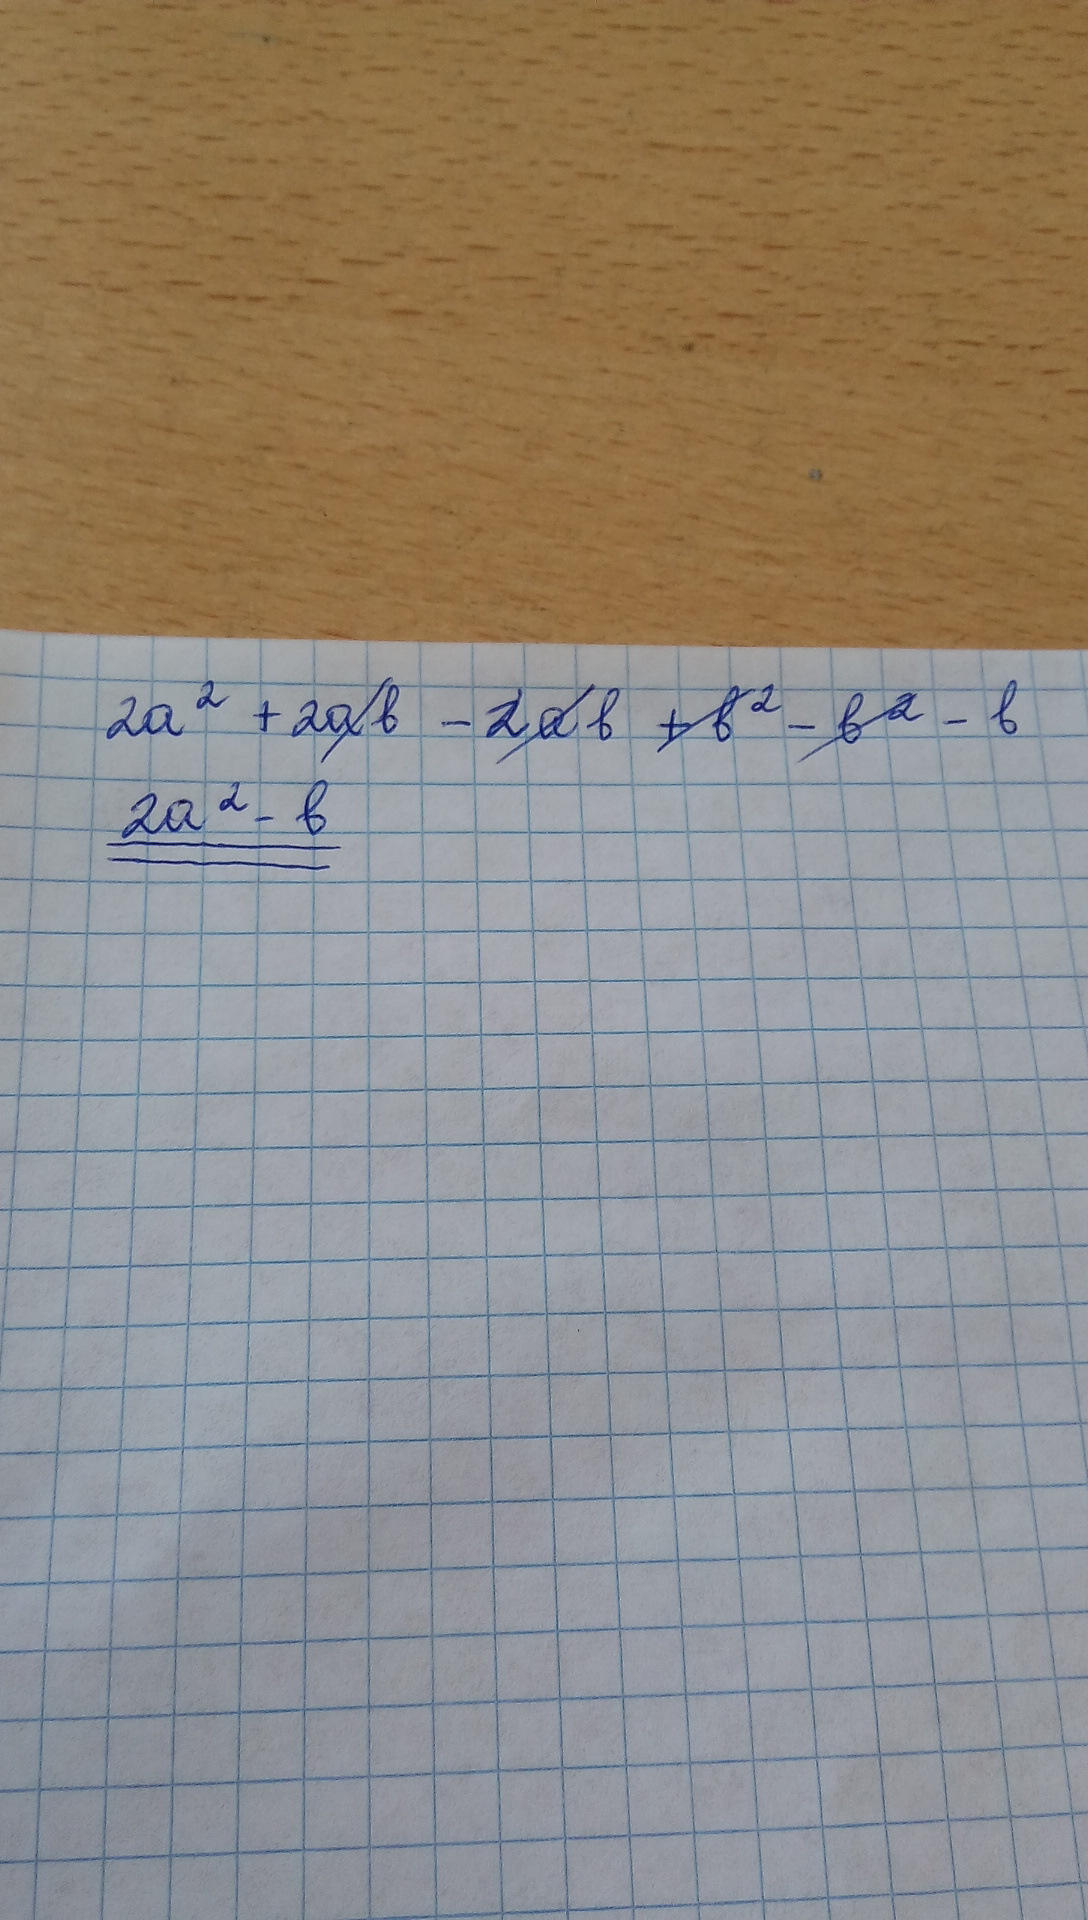 2a² + 2ab - 2ab + b² - b² - b
2a² - b